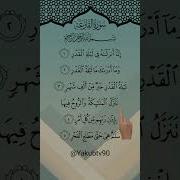 سُورَةُ القَدْرِ
بِسْمِ اللَّهِ الرَّحْمَٰنِ الرَّحِيمِ
إِنَّا أَنزَلْنَٰهُ فِي لَيْلَةِ الْقَدْرِ ١
وَمَا أَدْرَىٰكَ مَا لَيْلَةُ الْقَدْرِ ٢
لَيْلَةُ الْقَدْرِ خَيْرٌ مِّنْ أَلْفِ شَهْرٍ ٣
تَنَزَّلُ الْمَلَٰئِكَةُ وَالرُّوحُ فِيهَا
بِإِذْنِ رَبِّهِم مِّن كُلِّ أَمْرٍ ٤
سَلَٰمٌ هِيَ حَتَّىٰ مَطْلَعِ الْفَجْرِ ٥
@Yakubtv90